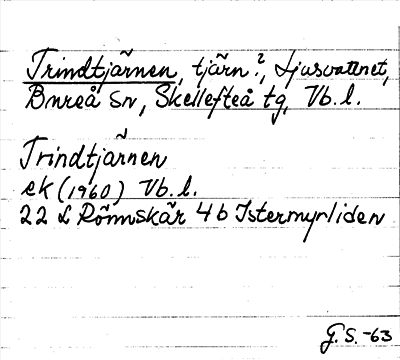 Trindtjärnen, tjärn?, Ljusvattnet,
Bureå sn, Skellefteå tg, Vb. l.
Trindtjärnen
ek (1960) Vb. l.
22 L Rönnskär 4 b Istermyrliden
G. S. -63